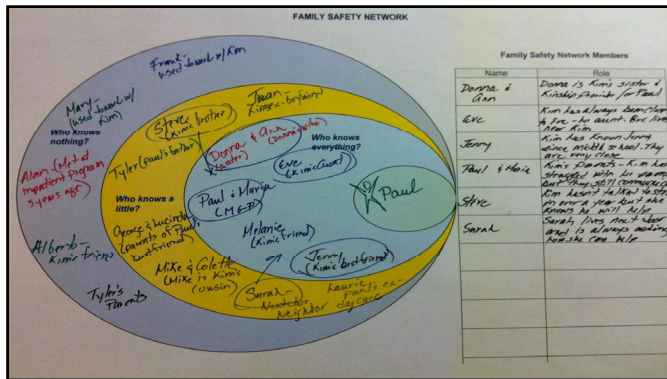 FAMILY SAFETY NETWORK
Frank-
used to work w/ Kim
Mary-
(used to work w/
Kim)
Who knows
nothing?
Alan (Met at
inpatient program
5 years ago)
Alberto-
Kim's friend
Tyler's
Parents
Juan-
Kim's ex-boyfriend
Steve
(Kim's brother)
Tyler (Paul's father)
Who knows
a little?
George & Lucinda
(parents of Paul's
best friend)
Mike & Colette
(Mike is Kim's
cousin)
Sarah-
Next door
Neighbor
Laurie
Paul's ex-
daycare
Donna & Ann
(sister)
(Donna's wife)
Who knows
everything?
Eve
(Kim's Aunt)
Paul & Maria
(MGP)
Melanie
(Kim's friend)
Jenny
(Kim's best friend)
Paul
Family Safety Network Members
Name
Role
Donna &
Ann
Donna is Kim's sister &
Kinship provider for Paul
Eve
Kim has always been close
to Eve - her aunt. Eve lives
near Kim
Jenny
Kim has known Jenny
since middle school. They
are very close
Paul & Maria
Kim's parents - Kim has
struggled with her parents
but they still communicate
Steve
Kim hasn't talked to Steve
in over a year but she
knows he will help
Sarah
Sarah lives next door
and is always asking
how she can help